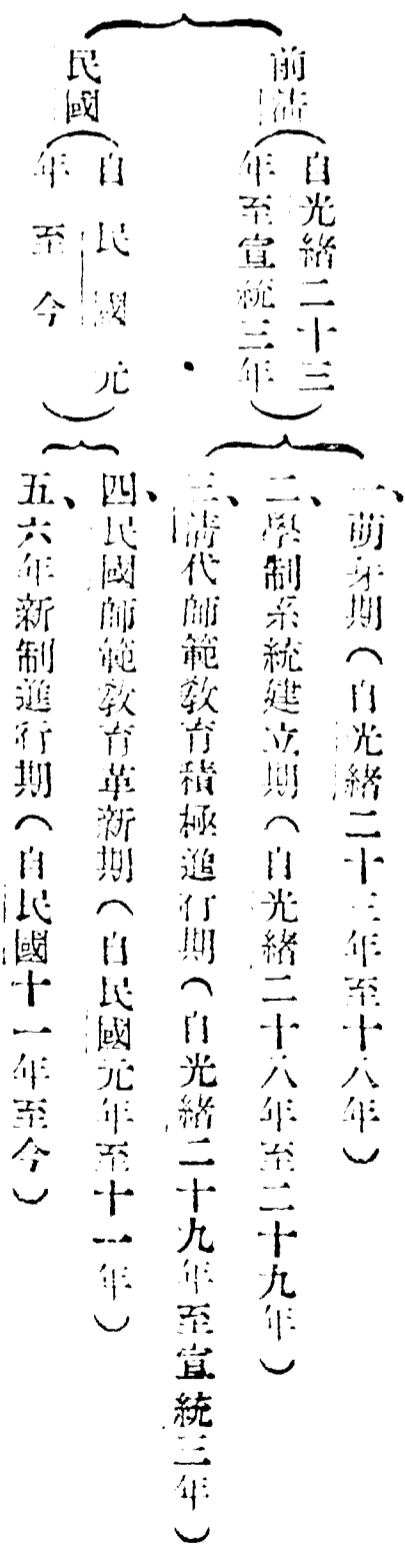 前清（自光緒二十三年至宣統三年）
一、萌芽期（自光緒二十三年至十八年）
二、學制系統建立期（自光緒二十八年至二十九年）
三、清代師範敎育積極進行期（自光緒二十九年至宣統三年）
民國（自民國元年至今）
四、民國師範敎育革新期（自民國元年至十一年）
五、六年新制進行期（自民國十一年至今）